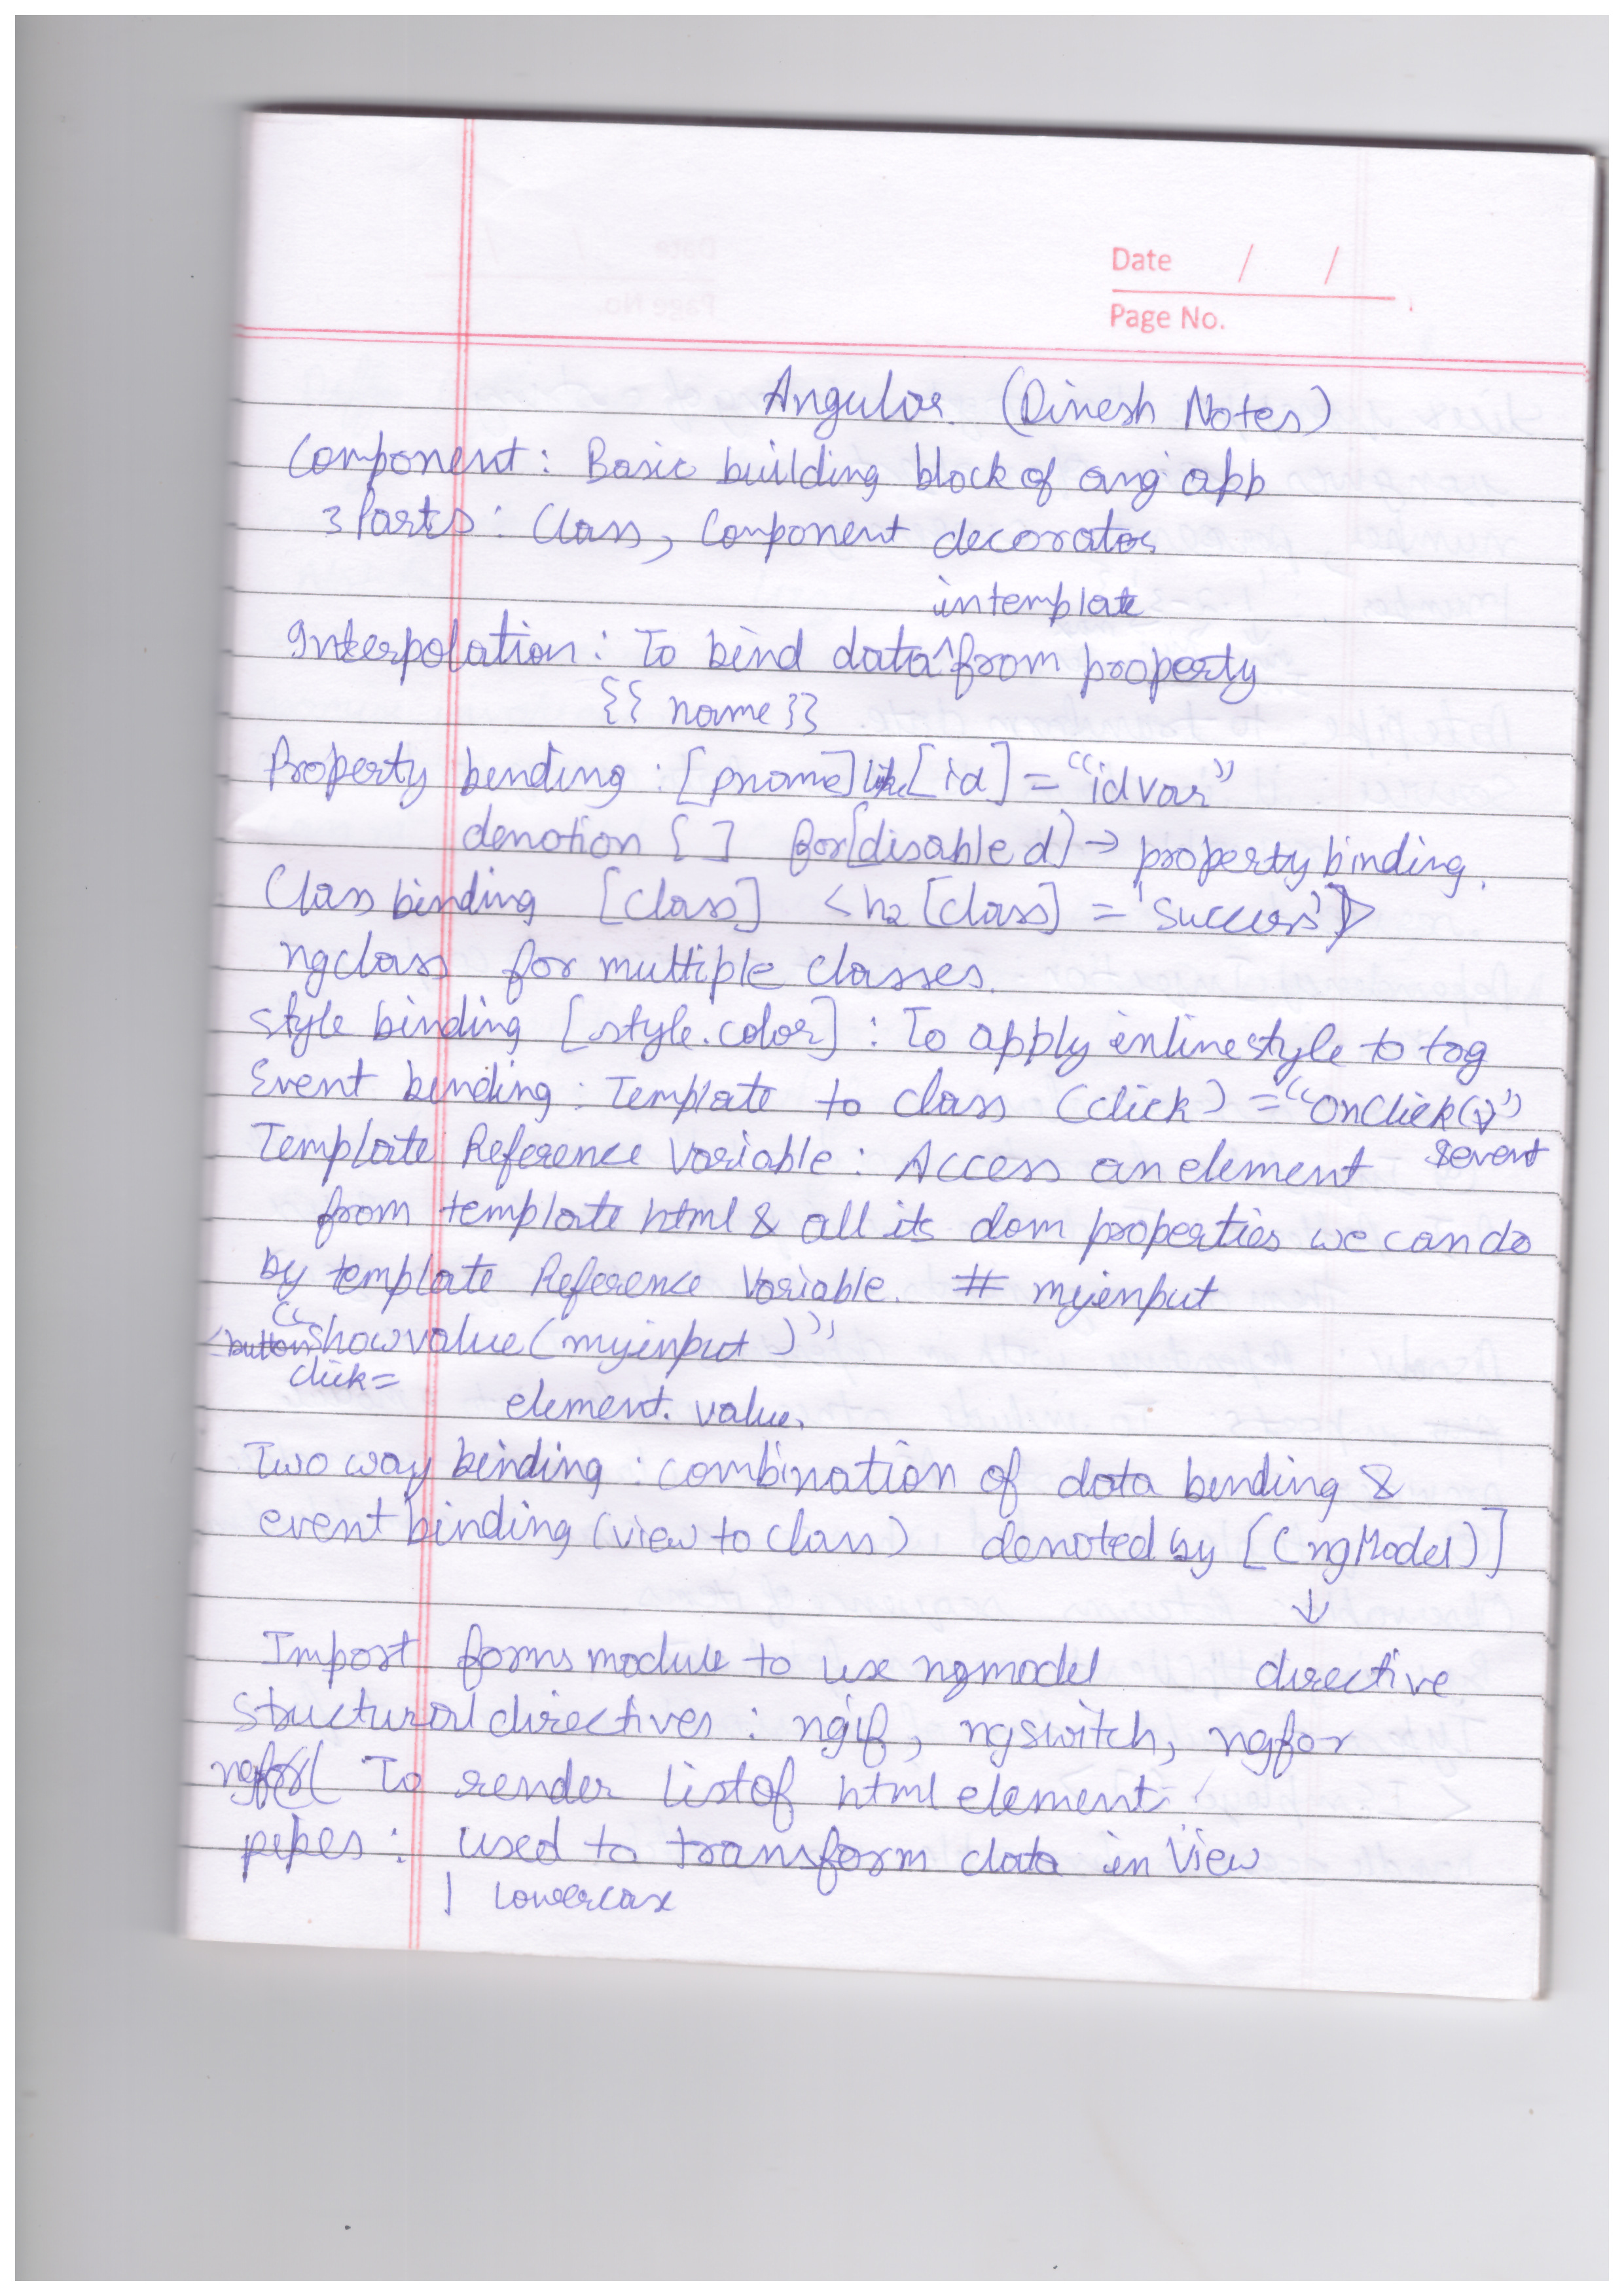 Date / /
Page No.
Angular (Dinesh Notes)
Component : Basic building block of ang app
3 Parts : Class, Component decorator
in template
Interpolation : To bind data ^ from property
{{ name }}
Property binding : [pname] like [id] = "idvar"
denotion [ ] for [disabled] → property binding.
Class binding [class] <h2 [class] = 'success'>
ngclass for multiple classes.
style binding [style.color] : To apply inline style to tag
Event binding : Template to class (click) = "onClick()"
$event
Template Reference Variable : Access an element
from template html & all its dom properties we can do
by template Reference Variable. # myinput
<button "showvalue(myinput)"
click=
element. value.
Two way binding : combination of data binding &
event binding (view to class) denoted by [(ngModel)]
↓
Import forms module to use ngmodel directive
structural directives : ngif, ngswitch, ngfor
ngfor To render list of html element
pipes : used to transform data in View
| lowercase